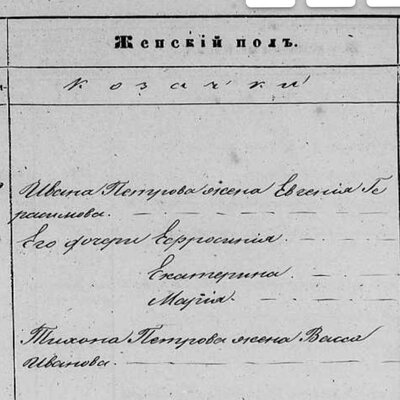 Женскій полъ.
козачки
Ивана Петрова жена Евгенія Ге
расимова.
Его дочери Ефросинія.
Екатерина
Марія.
Тихона Петрова жена Васса
Иванова.